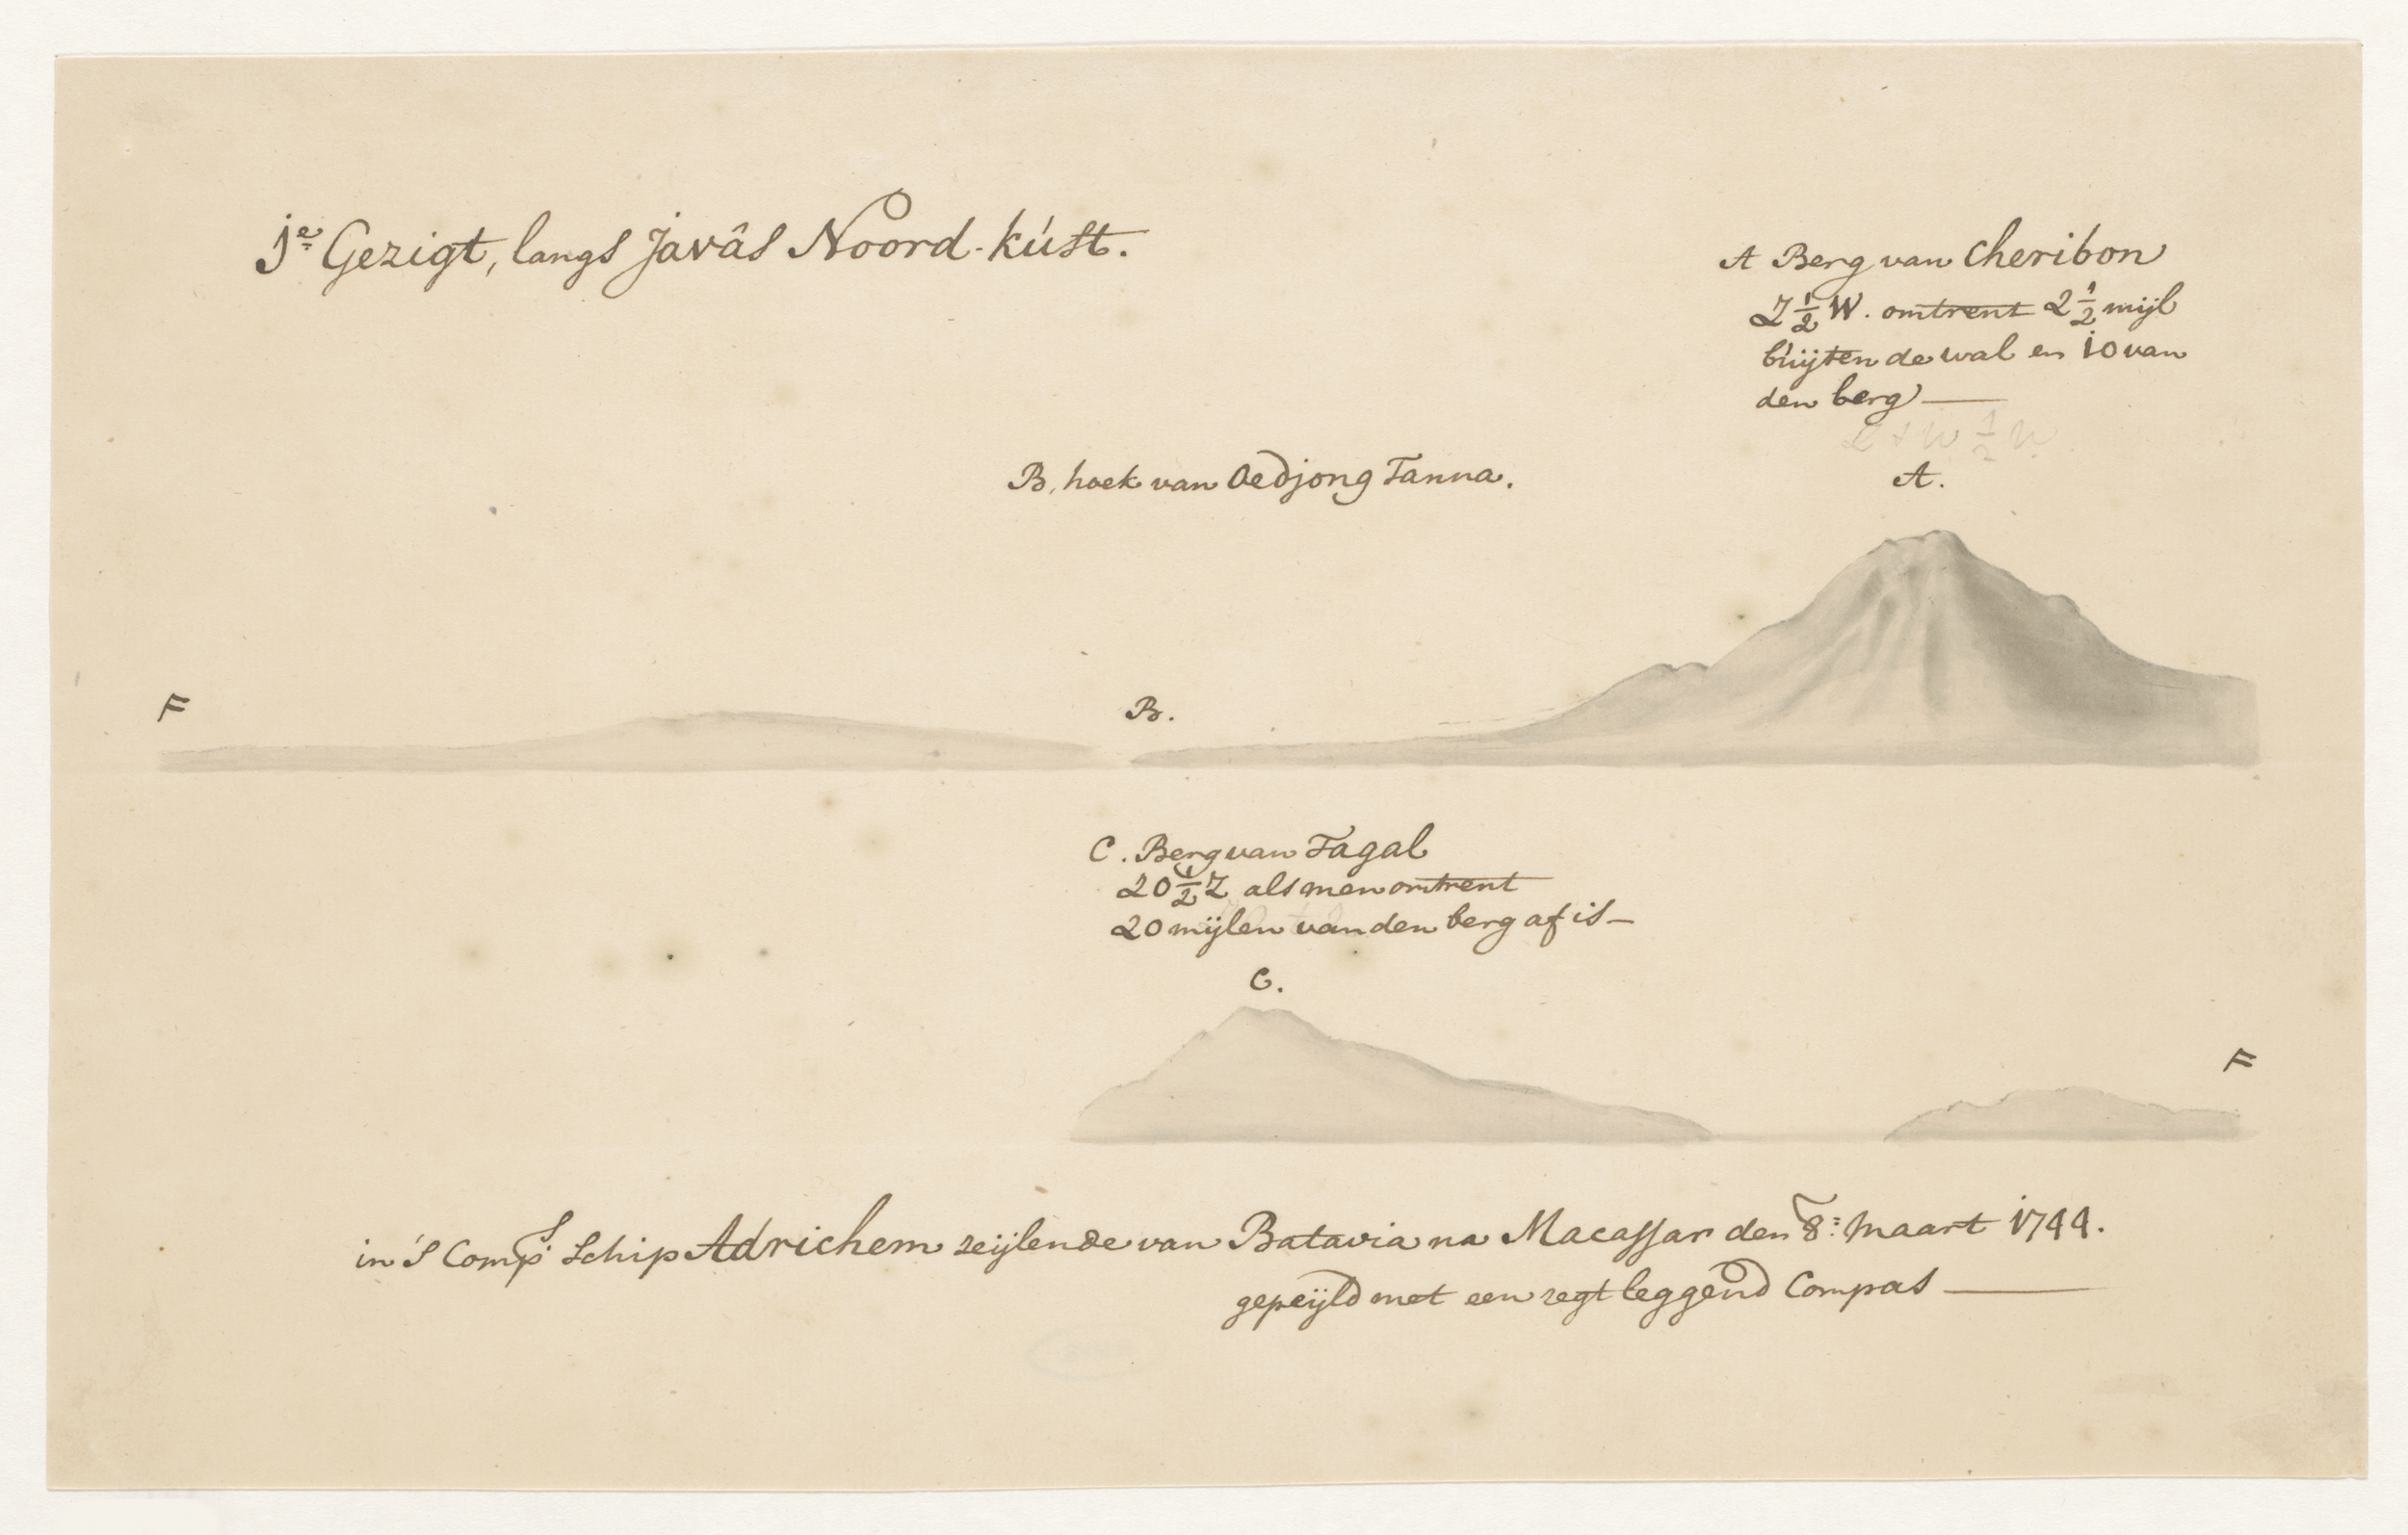 1e Gezigt, langs Javâs Noord-kúst.
A Berg van Cheribon
Z 1/2 W. omtrent 2 1/2 mijl
búijten de wal en 10 van
den berg —
A.
B. hoek van Oedjong Tanna.
F
B.
C. Berg van Tagal
ZO 1/2 Z als men omtrent
20 mijlen van den berg af is —
C.
F
in 'S Comps Schip Adrichem zeijlende van Batavia na Macassar den 8: Maart 1744.
gepeijld met een regt leggend Compas —